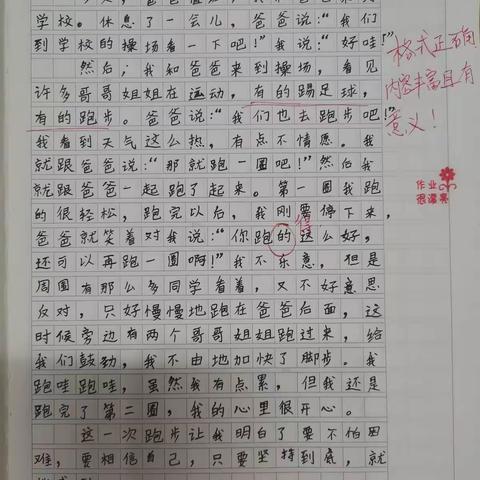 学校。休息了一会儿，爸爸说：“我们
到学校的操场看一下吧！”我说：“好哇！”
然后，我和爸爸来到操场，看见
许多哥哥姐姐在运动，有的踢足球，
有的跑步。爸爸说：“我们也去跑步吧！”
我看到天气这么热，有点不情愿。我
就跟爸爸说：“那就跑一圈吧！”然后我
就跟爸爸一起跑了起来。第一圈我跑
的很轻松，跑完以后，我刚要停下来，
爸爸就笑着对我说：“你跑的这么好，
得
还可以再跑一圈啊！”我不乐意，但是
周围有那么多同学看着，又不好意思
反对，只好慢慢地跑在爸爸后面，这
时候旁边有两个哥哥姐姐跑过来，给
我们鼓劲，我不由地加快了脚步。我
跑哇跑哇，虽然我有点累，但我还是
跑完了第二圈，我的心里很开心。
这一次跑步让我明白了要不怕困
难，要相信自己，只要坚持到底，就
格式正确
内容丰富且有
意义！
作业
很漂亮